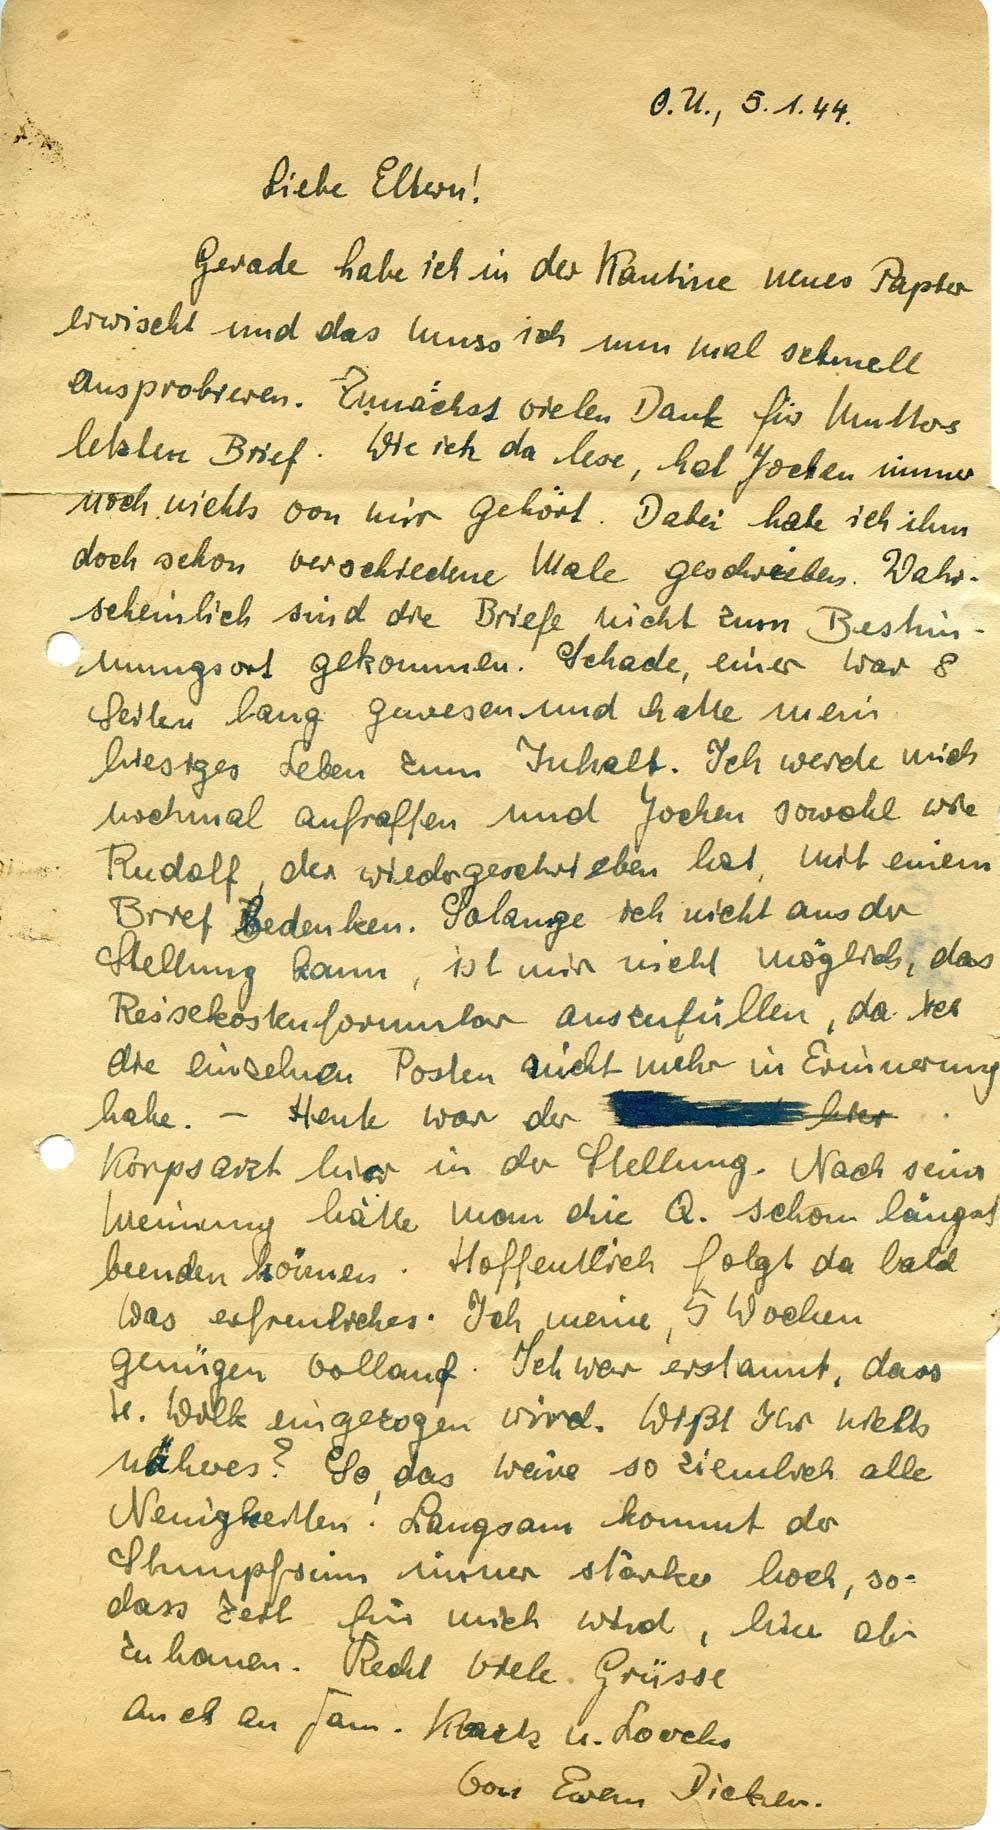 O.U., 5.1.44.
Liebe Eltern!
Gerade habe ich in der Kantine neues Papier
erwischt und das muss ich nun mal schnell
ausprobieren. Zunächst vielen Dank für Mutters
letzten Brief. Wie ich da lese, hat Jochen immer
noch nichts von mir gehört. Dabei habe ich ihm
doch schon verschiedene Male geschrieben. Wahr-
scheinlich sind die Briefe nicht zum Bestim-
mungsort gekommen. Schade, einer war 8
Seiten lang gewesen und hatte mein
hiesiges Leben zum Inhalt. Ich werde mich
nochmal aufraffen und Jochen sowohl wie
Rudolf, der wieder geschrieben hat, mit einem
Brief bedenken. Solange ich nicht aus der
Stellung kann, ist mir nicht möglich, das
Reisekostenformular auszufüllen, da ich
die einzelnen Posten nicht mehr in Erinnerung
habe. – Heute war der hier
Korpsarzt hier in der Stellung. Nach seiner
Meinung hätte man die Q. schon längst
beenden können. Hoffentlich folgt da bald
was erfreuliches. Ich meine, 5 Wochen
genügen vollauf. Ich war erstaunt, dass
H. Wilk eingezogen wird. Wißt Ihr nichts
näheres? So, das wäre so ziemlich alle
Neuigkeiten! Langsam kommt der
Stumpfsinn immer stärker hoch, so-
dass Zeit für mich wird, hier ab
zuhauen. Recht viele Grüsse
auch an Fam. u.
von Euern Dicken.